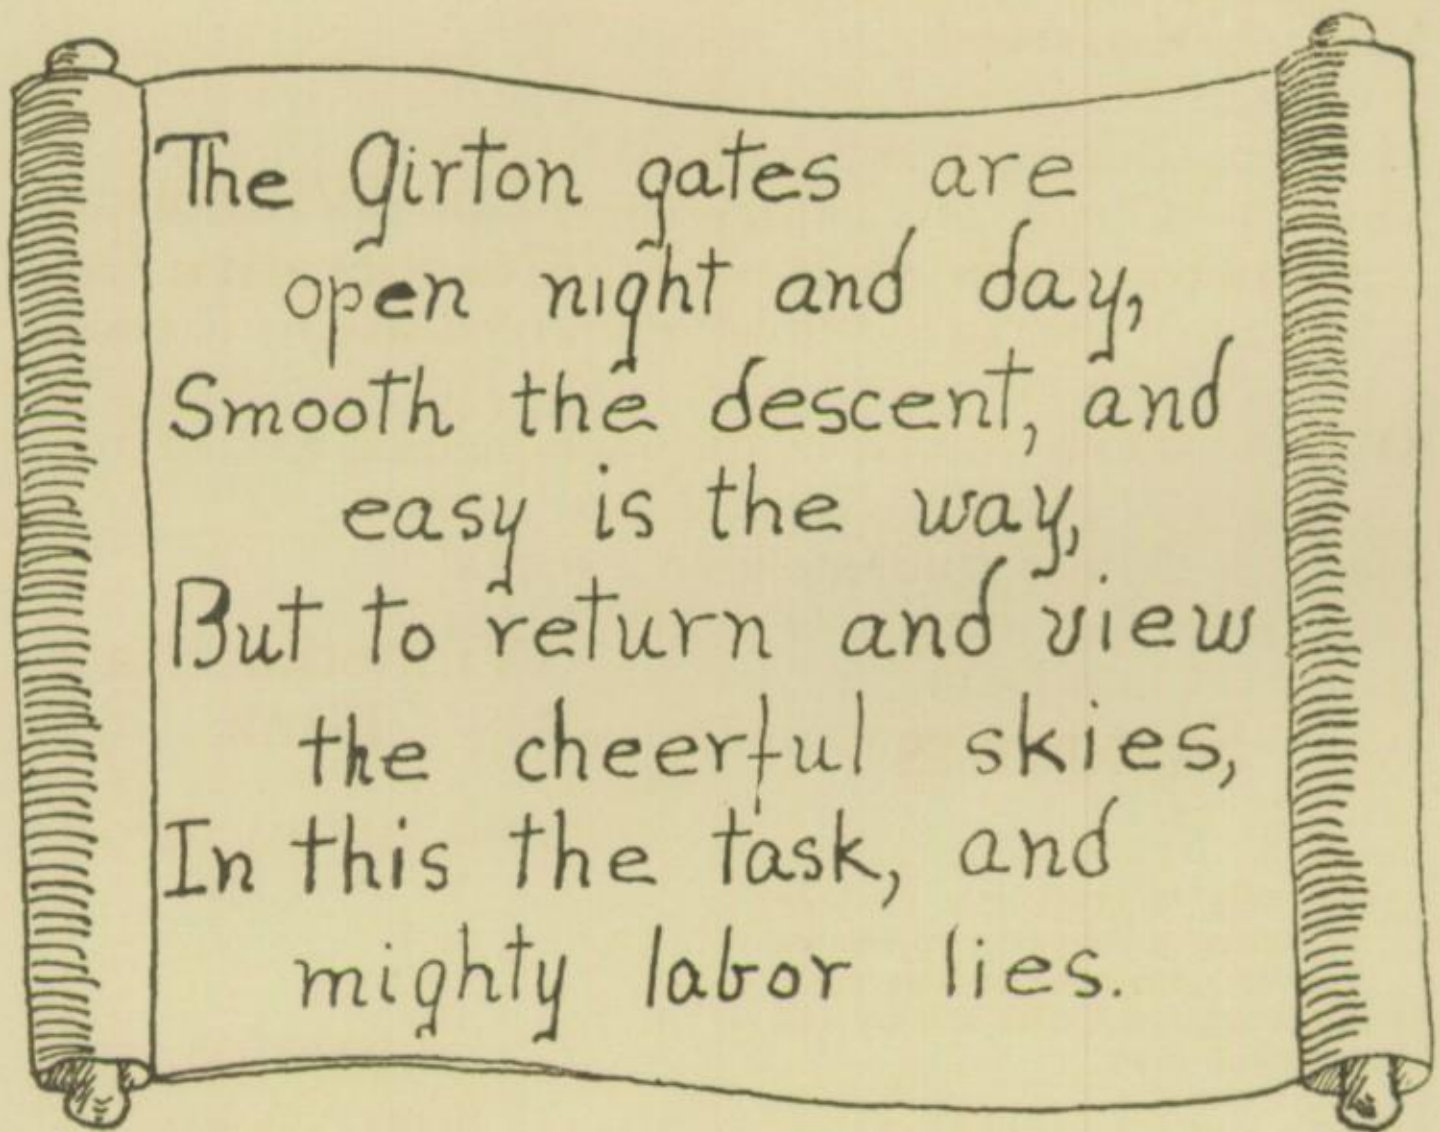 The Girton gates are
open night and day,
Smooth the descent, and
easy is the way,
But to return and view
the cheerful skies,
In this the task, and
mighty labor lies.